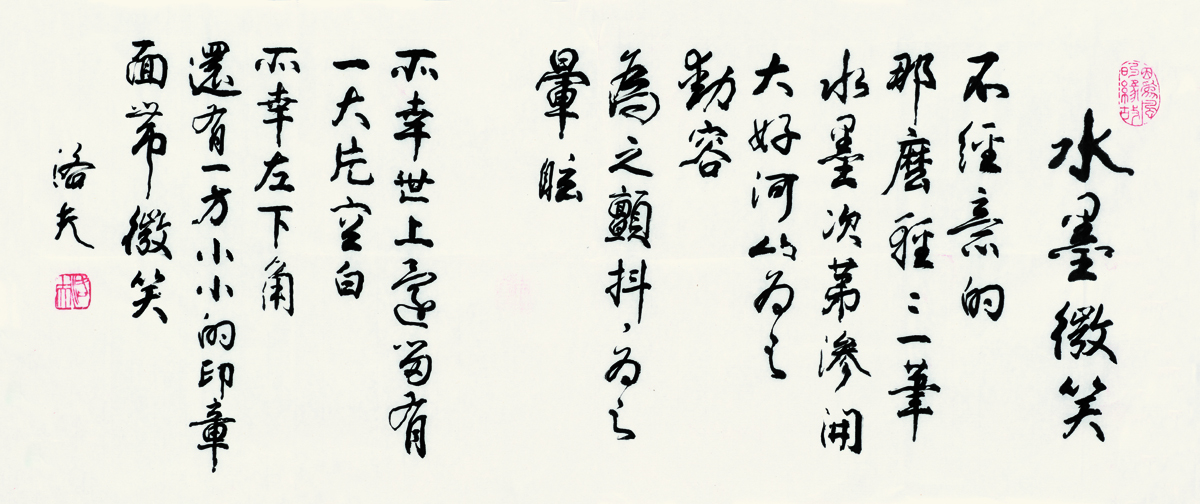 因為風
的緣故
水墨微笑
不經意的
那麼輕〻一筆
水墨次第滲開
大好河山為之
動容
為之顫抖、為之
暈眩
所幸世上還留有
一大片空白
所幸左下角
還有一方小小的印章
面帶微笑
洛夫